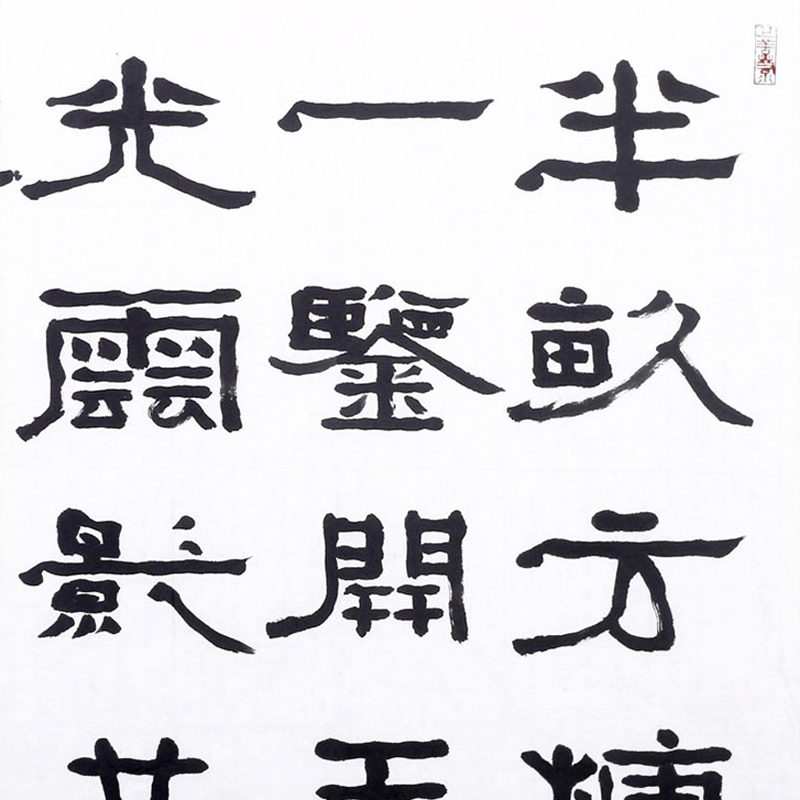 半畝方塘
一鑒開天
光雲影共